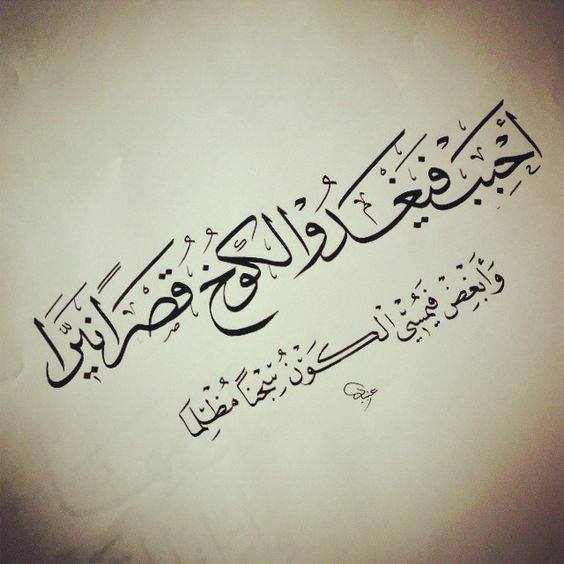 أَحْبِبْ فَيَغْدُو الْكُوخُ قَصْرًا نَيِّرًا
وَأَبْغِضْ فَيُمْسِي الْكَوْنُ سِجْنًا مُظْلِمًا